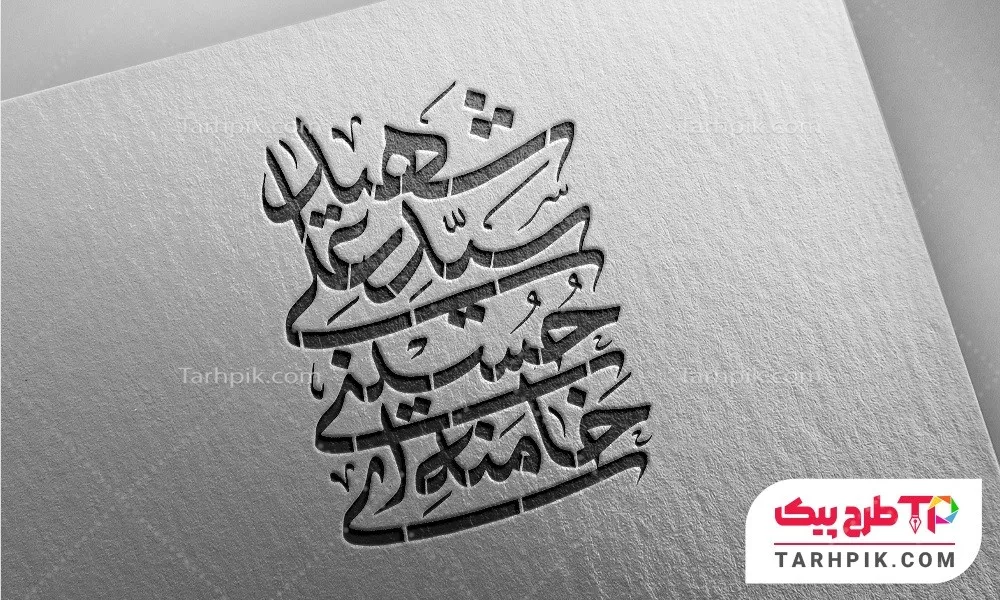 شهید
سیّد علی
حُسینی
خامنه‌ای
Tarhpik.com
Tarhpik.com
Tarhpik.com
Tarhpik.com
طرح پیک TP
TARHPIK.COM